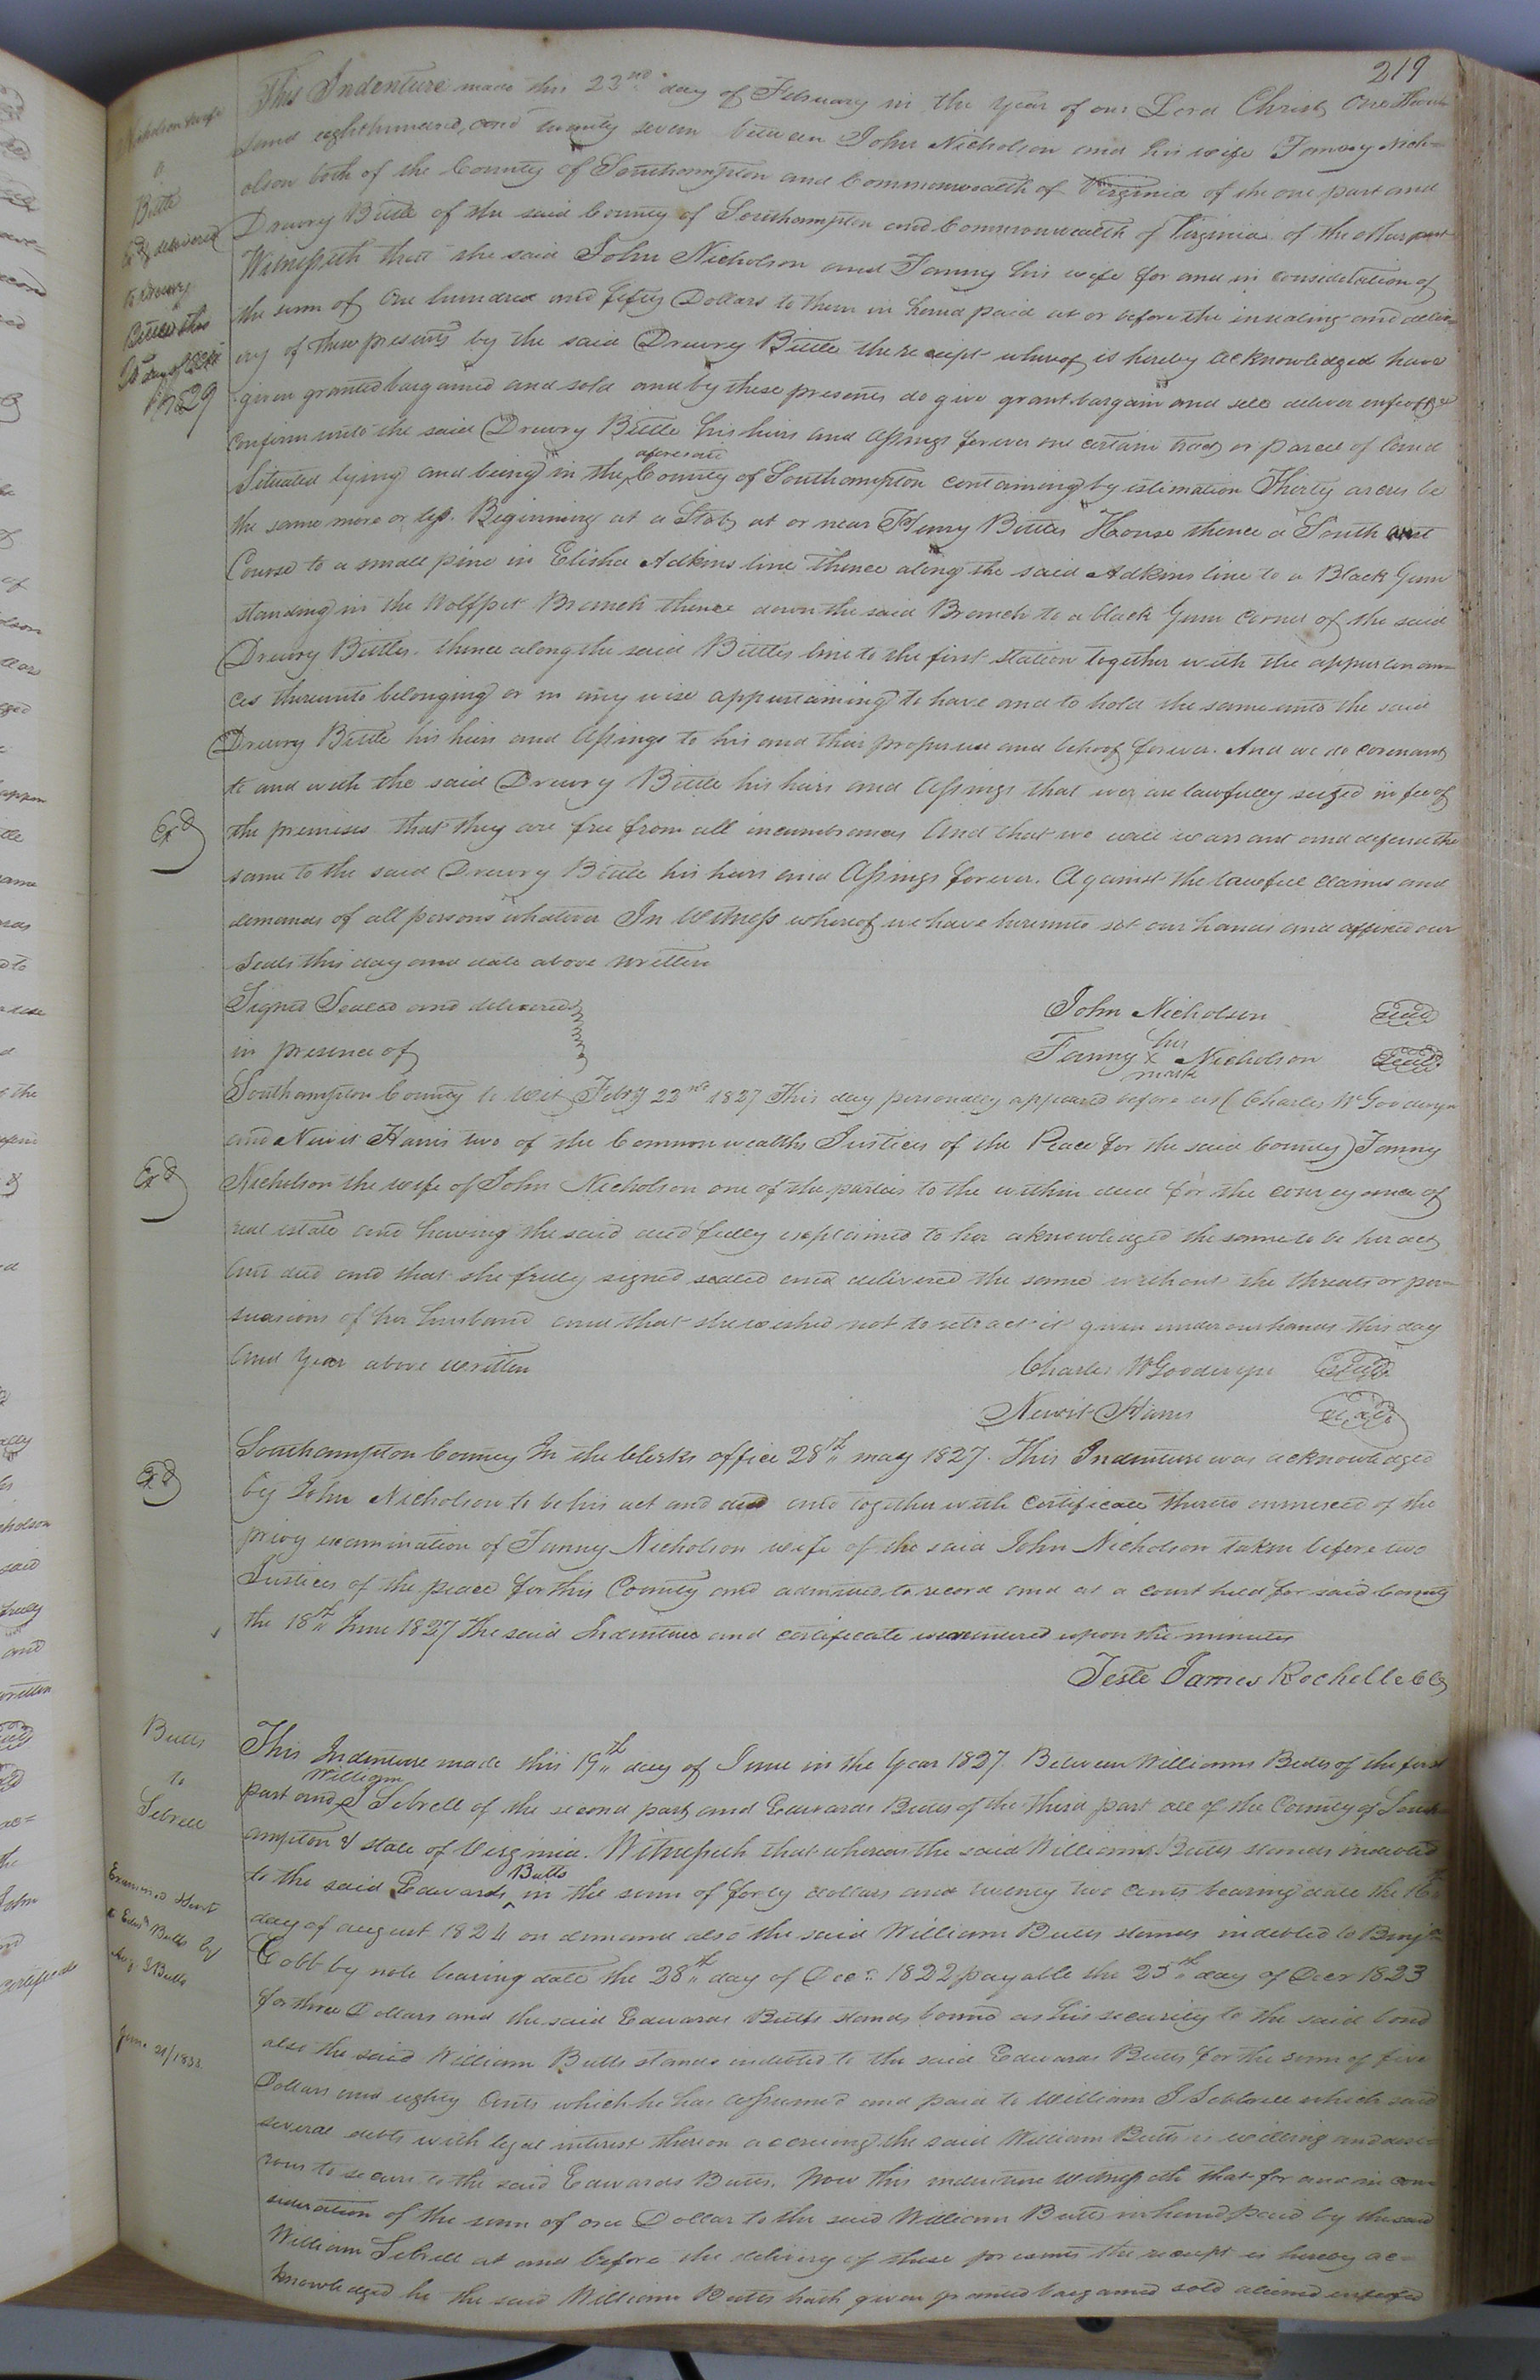 219
Nicholson & wife
to
Bittle
Ex.d & delivered
to Drewry
Bittle this
1829
This Indenture made this 23nd day of February in the year of our Lord Christ, One thou=
sand eighthundred, and twenty seven between John Nicholson and his wife Fanny Nich=
olson both of the County of Southampton and Commonwealth of Virginia of the one part and
Drewry Bittle of the said County of Southampton and Commonwealth of Virginia of the other part
Witnesseth that the said John Nicholson and Fanny his wife for and in consideration of
the sum of One hundred and fifty Dollars to them in hand paid at or before the insealing and deliv=
ery of these presents by the said Drewry Bittle the receipt whereof is hereby acknowledged have
given granted bargained and sold and by these presents do give grant bargain and sell deliver enfeoff &
Confirm unto the said Drewry Bittle his heirs and Assings forever one certain tract or parcel of land
Situated lying and being in the aforesaid County of Southampton containing by estimation Thirty acres be
the same more or less. Beginning at a Stob at or near Henry Bittles House thence a South
Course to a small pine in Elisha Adkins line thence along the said Adkins line to a Black Gum
standing in the Wolfpit Branch thence down the said Branch to a black Gum corner of the said
Drewry Bittles. thence along the said Bittles line to the first station together with the appurtenan=
ces thereunto belonging or in any wise appertaining to have and to hold the same unto the said
Drewry Bittle his heirs and Assings to his and their proper use and behoof forever. And we do covenant
to and with the said Drewry Bittle his heirs and Assings that we are lawfully seized in fee of
Exd
the premises that they are free from all incumbrances And that we will warrant and defend the
same to the said Drewry Bittle his heirs and Assings forever. Against the lawfull claims and
demands of all persons whatever In Witness whereof we have hereunto set our hands and affixed our
Seals this day and date above written
Signed Sealed and delivered
in presence of
John Nicholson Seal
Fanny her X mark Nicholson Seal
Southampton County to wit, Feby 22nd 1827 This day personally appeared before us (Charles W Goodwyn
and Newit Harris two of the Commonwealths Justices of the Peace for the said County) Fanny
Exd
Nicholson the wife of John Nicholson one of the parties to the within deed for the conveyance of
real estate and having the said deed fully explained to her acknowledged the same to be her act
and deed and that she freely signed sealed and delivered the same without the threats or per=
suasions of her husband and that she wished not to retract it given under our hands this day
and year above written
Charles W Goodwyn Seal
Newit Harris Seal
Exd
Southampton County In the Clerks office 28th may 1827. This Indenture was acknowledged
by John Nicholson to be his act and deed and together with certificate thereto annexed of the
privy examination of Fanny Nicholson wife of the said John Nicholson taken before two
Justices of the peace for this County and admitted to record and at a court held for said County
the 18th June 1827 the said Indenture and certificate were entered upon the minutes
Teste James Rochelle CC
Butts
to
Sebrell
Examined & sent
to Edwd Butts by
June 21/1833
This Indenture made this 19th day of June in the Year 1827. Between Williams Butts of the first
part and William J Sebrell of the second part, and Edwards Butts of the third part all of the County of South
ampton & state of Virginia. Witnesseth that whereas the said Williams Butts stands indebted
to the said Edwards Butts in the sum of forty dollars and twenty two cents bearing date the 16th
day of august 1824 on demand also the said William Butts stands indebted to Benjn
Cobb by note bearing date the 28th day of Decr 1822 payable the 25th day of Decr 1823
for three Dollars and the said Edwards Butts stands bound as his security to the said bond
also the said William Butts stands indebted to the said Edwards Butts for the sum of five
Dollars and eighty Cents which he has assumed and paid to William J Sebrell which said
several debts with legal interest thereon accruing the said William Butts is willing and desi=
rous to secure to the said Edwards Butts. Now this indenture Witnesseth that for and in con=
sideration of the sum of one Dollar to the said William Butts in hand paid by the said
William Sebrell at and before the delivery of these presents the receipt is hereby ac=
knowledged he the said William Butts hath given granted bargained sold aliened enfeofed